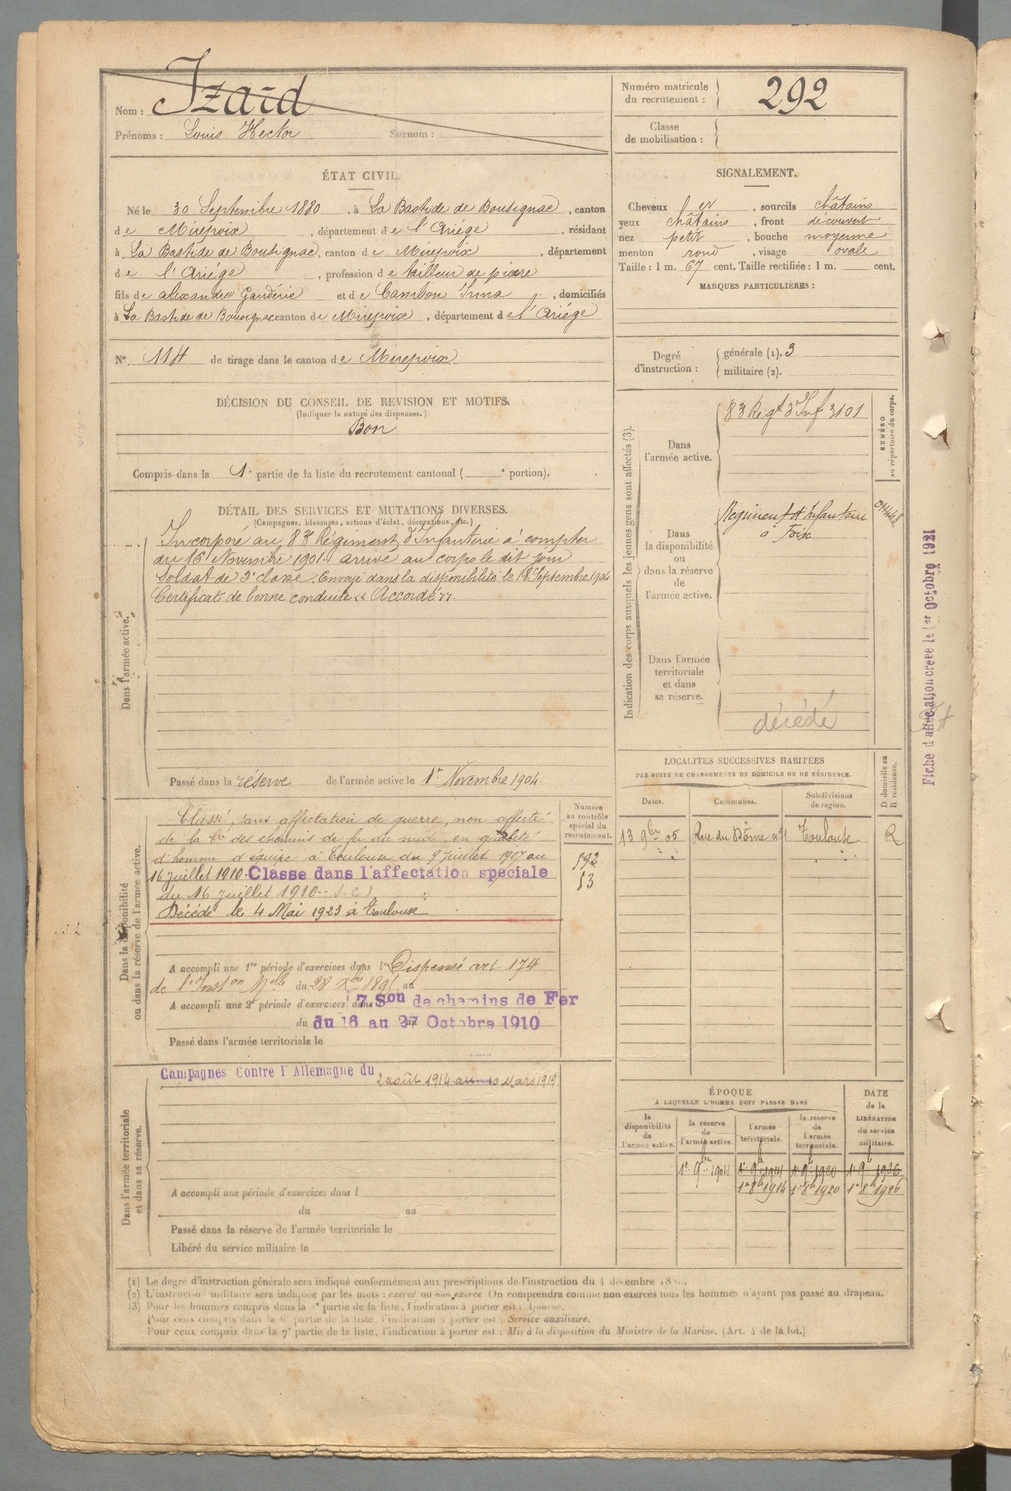 Nom : Izard
Prénoms : Louis Hector Surnom :
Numéro matricule du recrutement : 292
Classe de mobilisation :
ÉTAT CIVIL.
Né le 30 Septembre 1880, à La Bastide de Bousignac, canton
de Mirepoix, département de l'Ariége, résidant
à La Bastide de Bousignac, canton de Mirepoix, département
de l'Ariége, profession de tailleur de pierre
fils de Alexandre Gaudérie et de Cambon, domiciliés
à La Bastide de Bousignac canton de Mirepoix, département de l'Ariége
N° 114 de tirage dans le canton de Mirepoix
DÉCISION DU CONSEIL DE REVISION ET MOTIFS.
(Indiquer la nature des dispenses.)
Bon
Compris dans la 1e partie de la liste du recrutement cantonal ( e portion).
SIGNALEMENT.
Cheveux, sourcils châtains
yeux châtains, front découvert
nez petit, bouche moyenne
menton rond, visage ovale
Taille : 1 m. 67 cent. Taille rectifiée : 1 m. cent.
MARQUES PARTICULIÈRES :
Degré d'instruction :
générale (1). 3
militaire (2).
DÉTAIL DES SERVICES ET MUTATIONS DIVERSES.
(Campagnes, blessures, actions d'éclat, décorations, etc.)
Dans l'armée active.
Incorporé au 83e Régiment d'Infanterie à compter
du 16 Novembre 1901. arrivé au corps le dit jour
Soldat de 2e classe. Envoyé dans la disponibilité le 18 Septembre 1904
Certificat de bonne conduite « Accordé ».
Passé dans la réserve de l'armée active le 1er Novembre 1904.
Indication des corps auxquels les jeunes gens sont affectés (3).
NUMÉRO au répertoire du corps.
Dans l'armée active.
83 Régt d'Inf 3101
Dans la disponibilité ou dans la réserve de l'armée active.
Régiment d'Infanterie
à Foix
Dans l'armée territoriale et dans sa réserve.
décédé
Fiche d'affectation créée le 1er Octobre 1921
Dans la disponibilité ou dans la réserve de l'armée active.
Numéro au contrôle spécial du recrutement.
Classé, sans affectation de guerre, non affecté
de la Cie des chemins de fer du midi, en qualité
d'homme d'équipe à Toulouse du 9 juillet 1907 au
16 juillet 1910. Classe dans l'affectation spéciale
du 16 juillet 1910 - S.C)
Décédé le 4 Mai 1923 à Toulouse
592
53
A accompli une 1re période d'exercices dans l Dispensé art 174
de l'Inston Melle du 28 Xbre 1895 au
A accompli une 2e période d'exercices dans 7 Son de chemins de Fer
du 16 au 27 Octobre 1910
Passé dans l'armée territoriale le
LOCALITÉS SUCCESSIVES HABITÉES
PAR SUITE DE CHANGEMENTS DE DOMICILE OU DE RÉSIDENCE.
Dates. Communes. Subdivisions de région. D domicile ou R résidence.
13 9bre 05 Rue du Dôme Toulouse R
Dans l'armée territoriale et dans sa réserve.
Campagnes Contre l'Allemagne du 2 août 1914 au 10 Mars 1919
A accompli une période d'exercices dans l
du au
Passé dans la réserve de l'armée territoriale le
Libéré du service militaire le
ÉPOQUE
À LAQUELLE L'HOMME DOIT PASSER DANS
DATE de la LIBÉRATION du service militaire.
la disponibilité de l'armée active.
la réserve de l'armée active.
l'armée territoriale.
la réserve de l'armée territoriale.
1er 9bre 1904 1er 9b 1914 1er 9b 1920 1er 9b 1926
1er 8b 1914 1er 8b 1920 1er 8b 1926
(1) Le degré d'instruction générale sera indiqué conformément aux prescriptions de l'instruction du 4 décembre
(2) L'instruction militaire sera indiquée par les mots : exercé ou non exercé. On comprendra comme non exercés tous les hommes n'ayant pas passé au drapeau.
(3) Pour les hommes compris dans la partie de la liste, l'indication à porter est : Ajourné.
Pour ceux compris dans la 6e partie de la liste, l'indication à porter est : Service auxiliaire.
Pour ceux compris dans la 7e partie de la liste, l'indication à porter est : Mis à la disposition du Ministre de la Marine. (Art. 4 de la loi.)